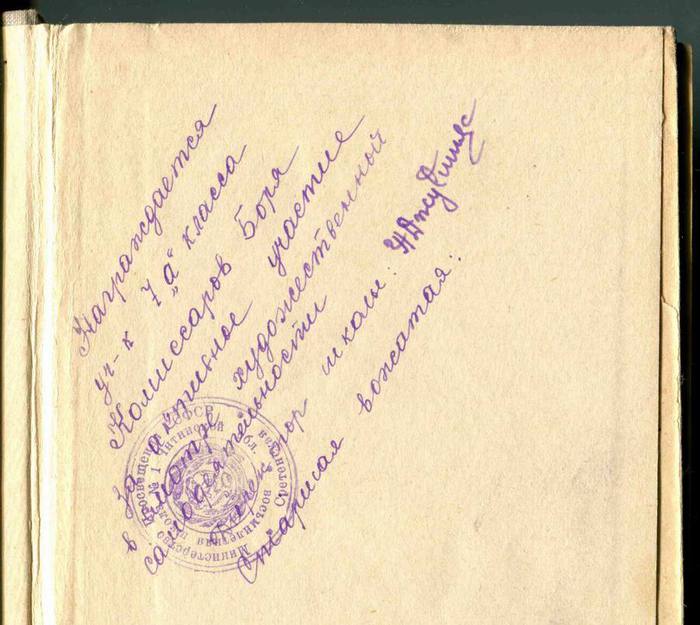 Награждается
уч-к 7 „а" класса
Комиссаров Боря
За активное участие
в смотре художественной
самодеятельности
Директор школы:
Старшая вожатая:
Министерство Просвещения РСФСР
восьмилетняя школа № 1 Читинской обл.